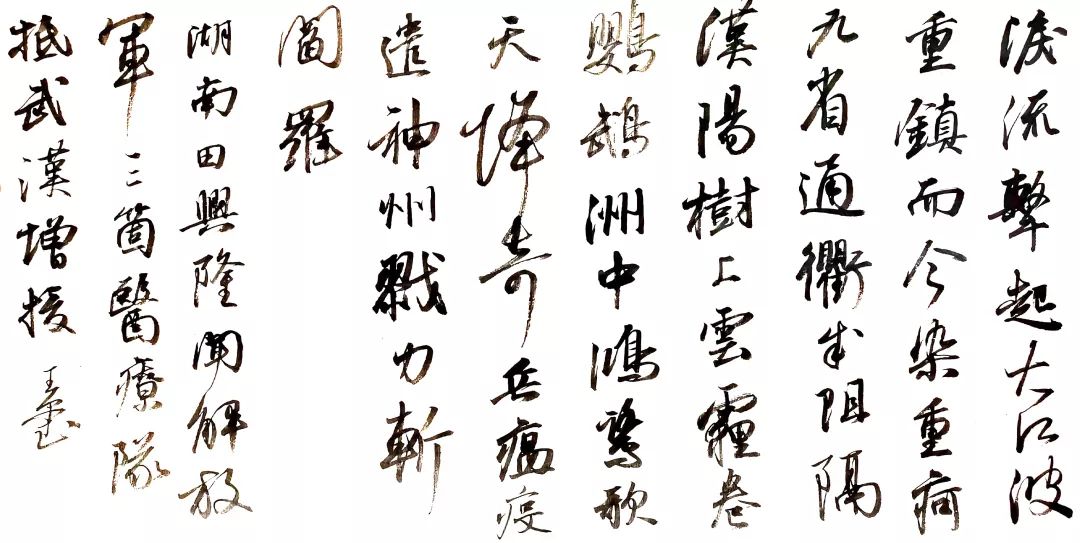 淚流擊起大江波
重鎮而今染重疴
九省通衢成阻隔
漢陽樹上雲霾卷
鸚鵡洲中鴻歌
天降奇兵瘟疫
遣神州戮力斬
閻羅
湖南田興隆聞解放
軍三箇醫療隊
抵武漢增援 王